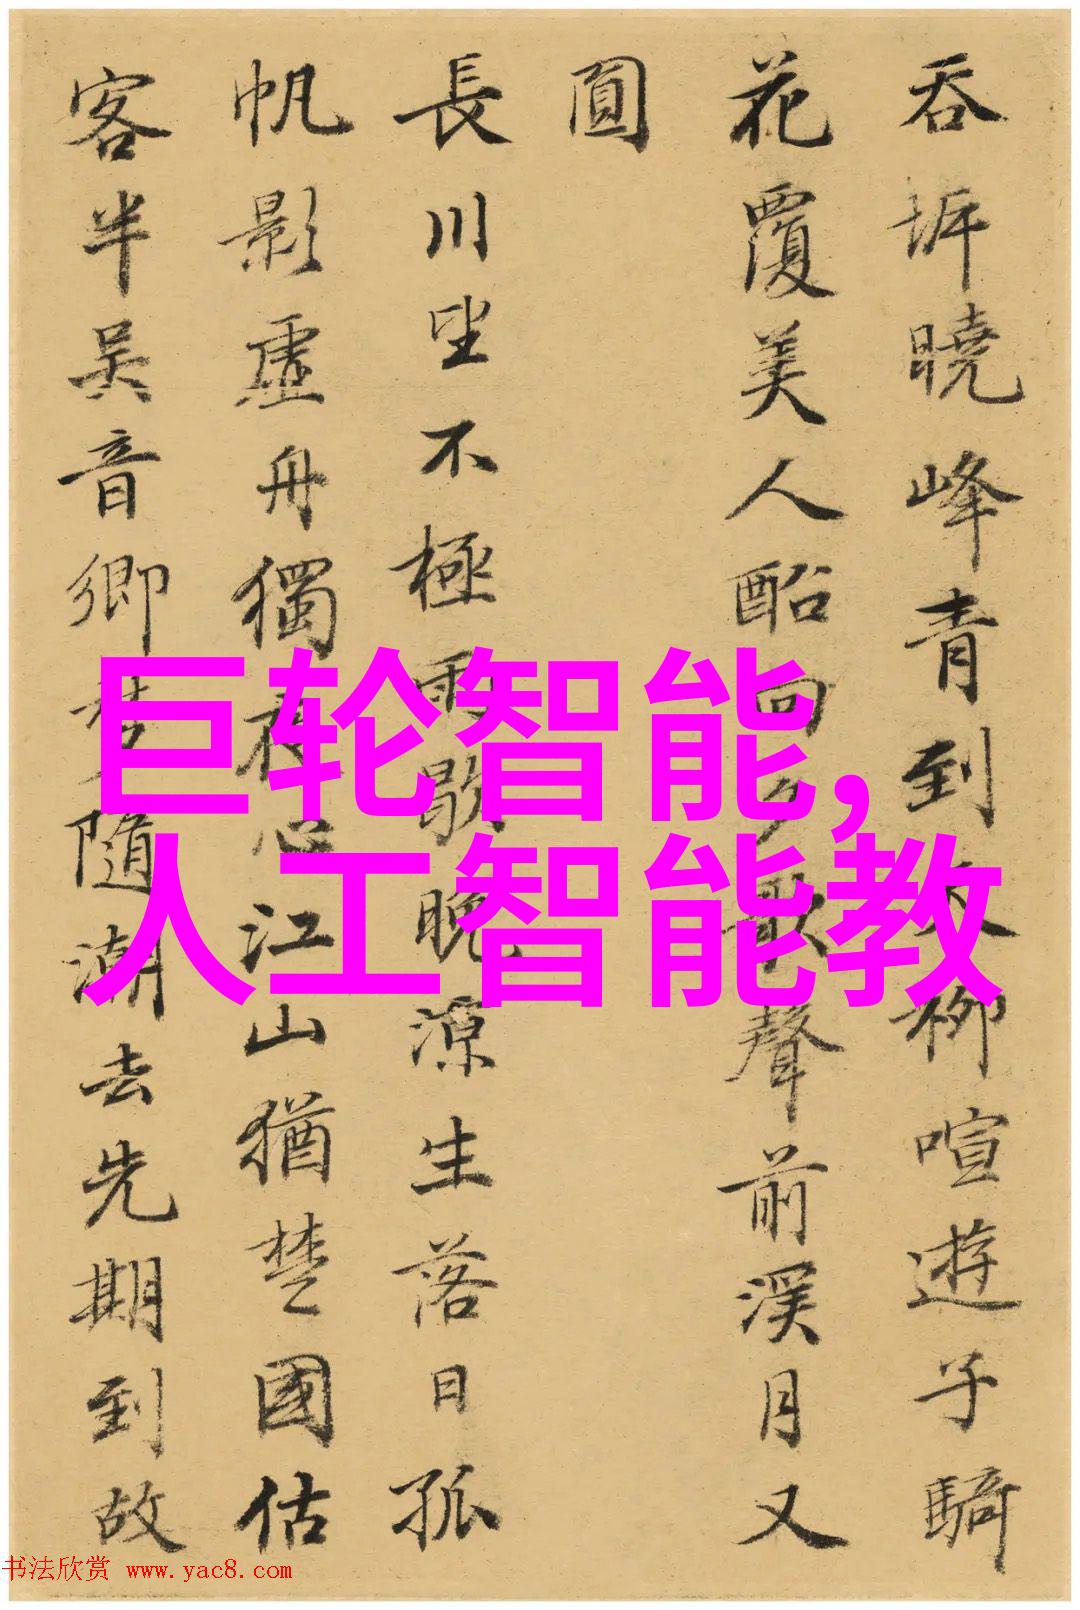 吞坼曉峰青到
柳喧遊子騎
花覆美人酩回
歌聲前溪月又
圓
長川坐不極雨歇晚涼生落日孤
帆影虛舟獨夜心江山猶楚國估
客半吳音鄉夢隨潮去先期到故
巨轮智能,
人工智能教
书法欣赏 www.yac8.com